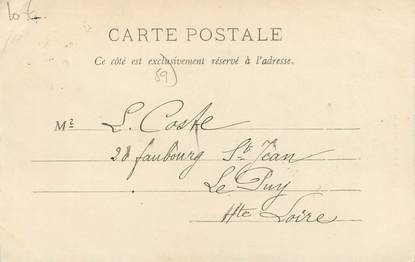 CARTE POSTALE
Ce côté est exclusivement réservé à l'adresse.
59)
Mr L. Coste
28 faubourg St Jean
Le Puy
Hte Loire